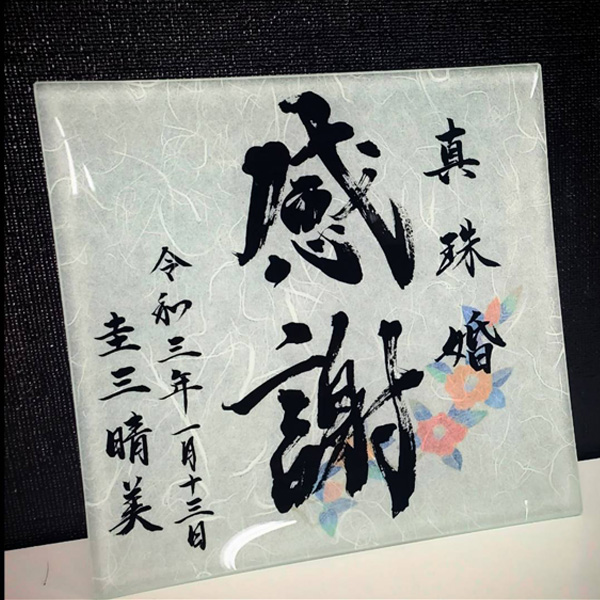 真珠婚
感謝
令和三年一月十三日
圭三晴美